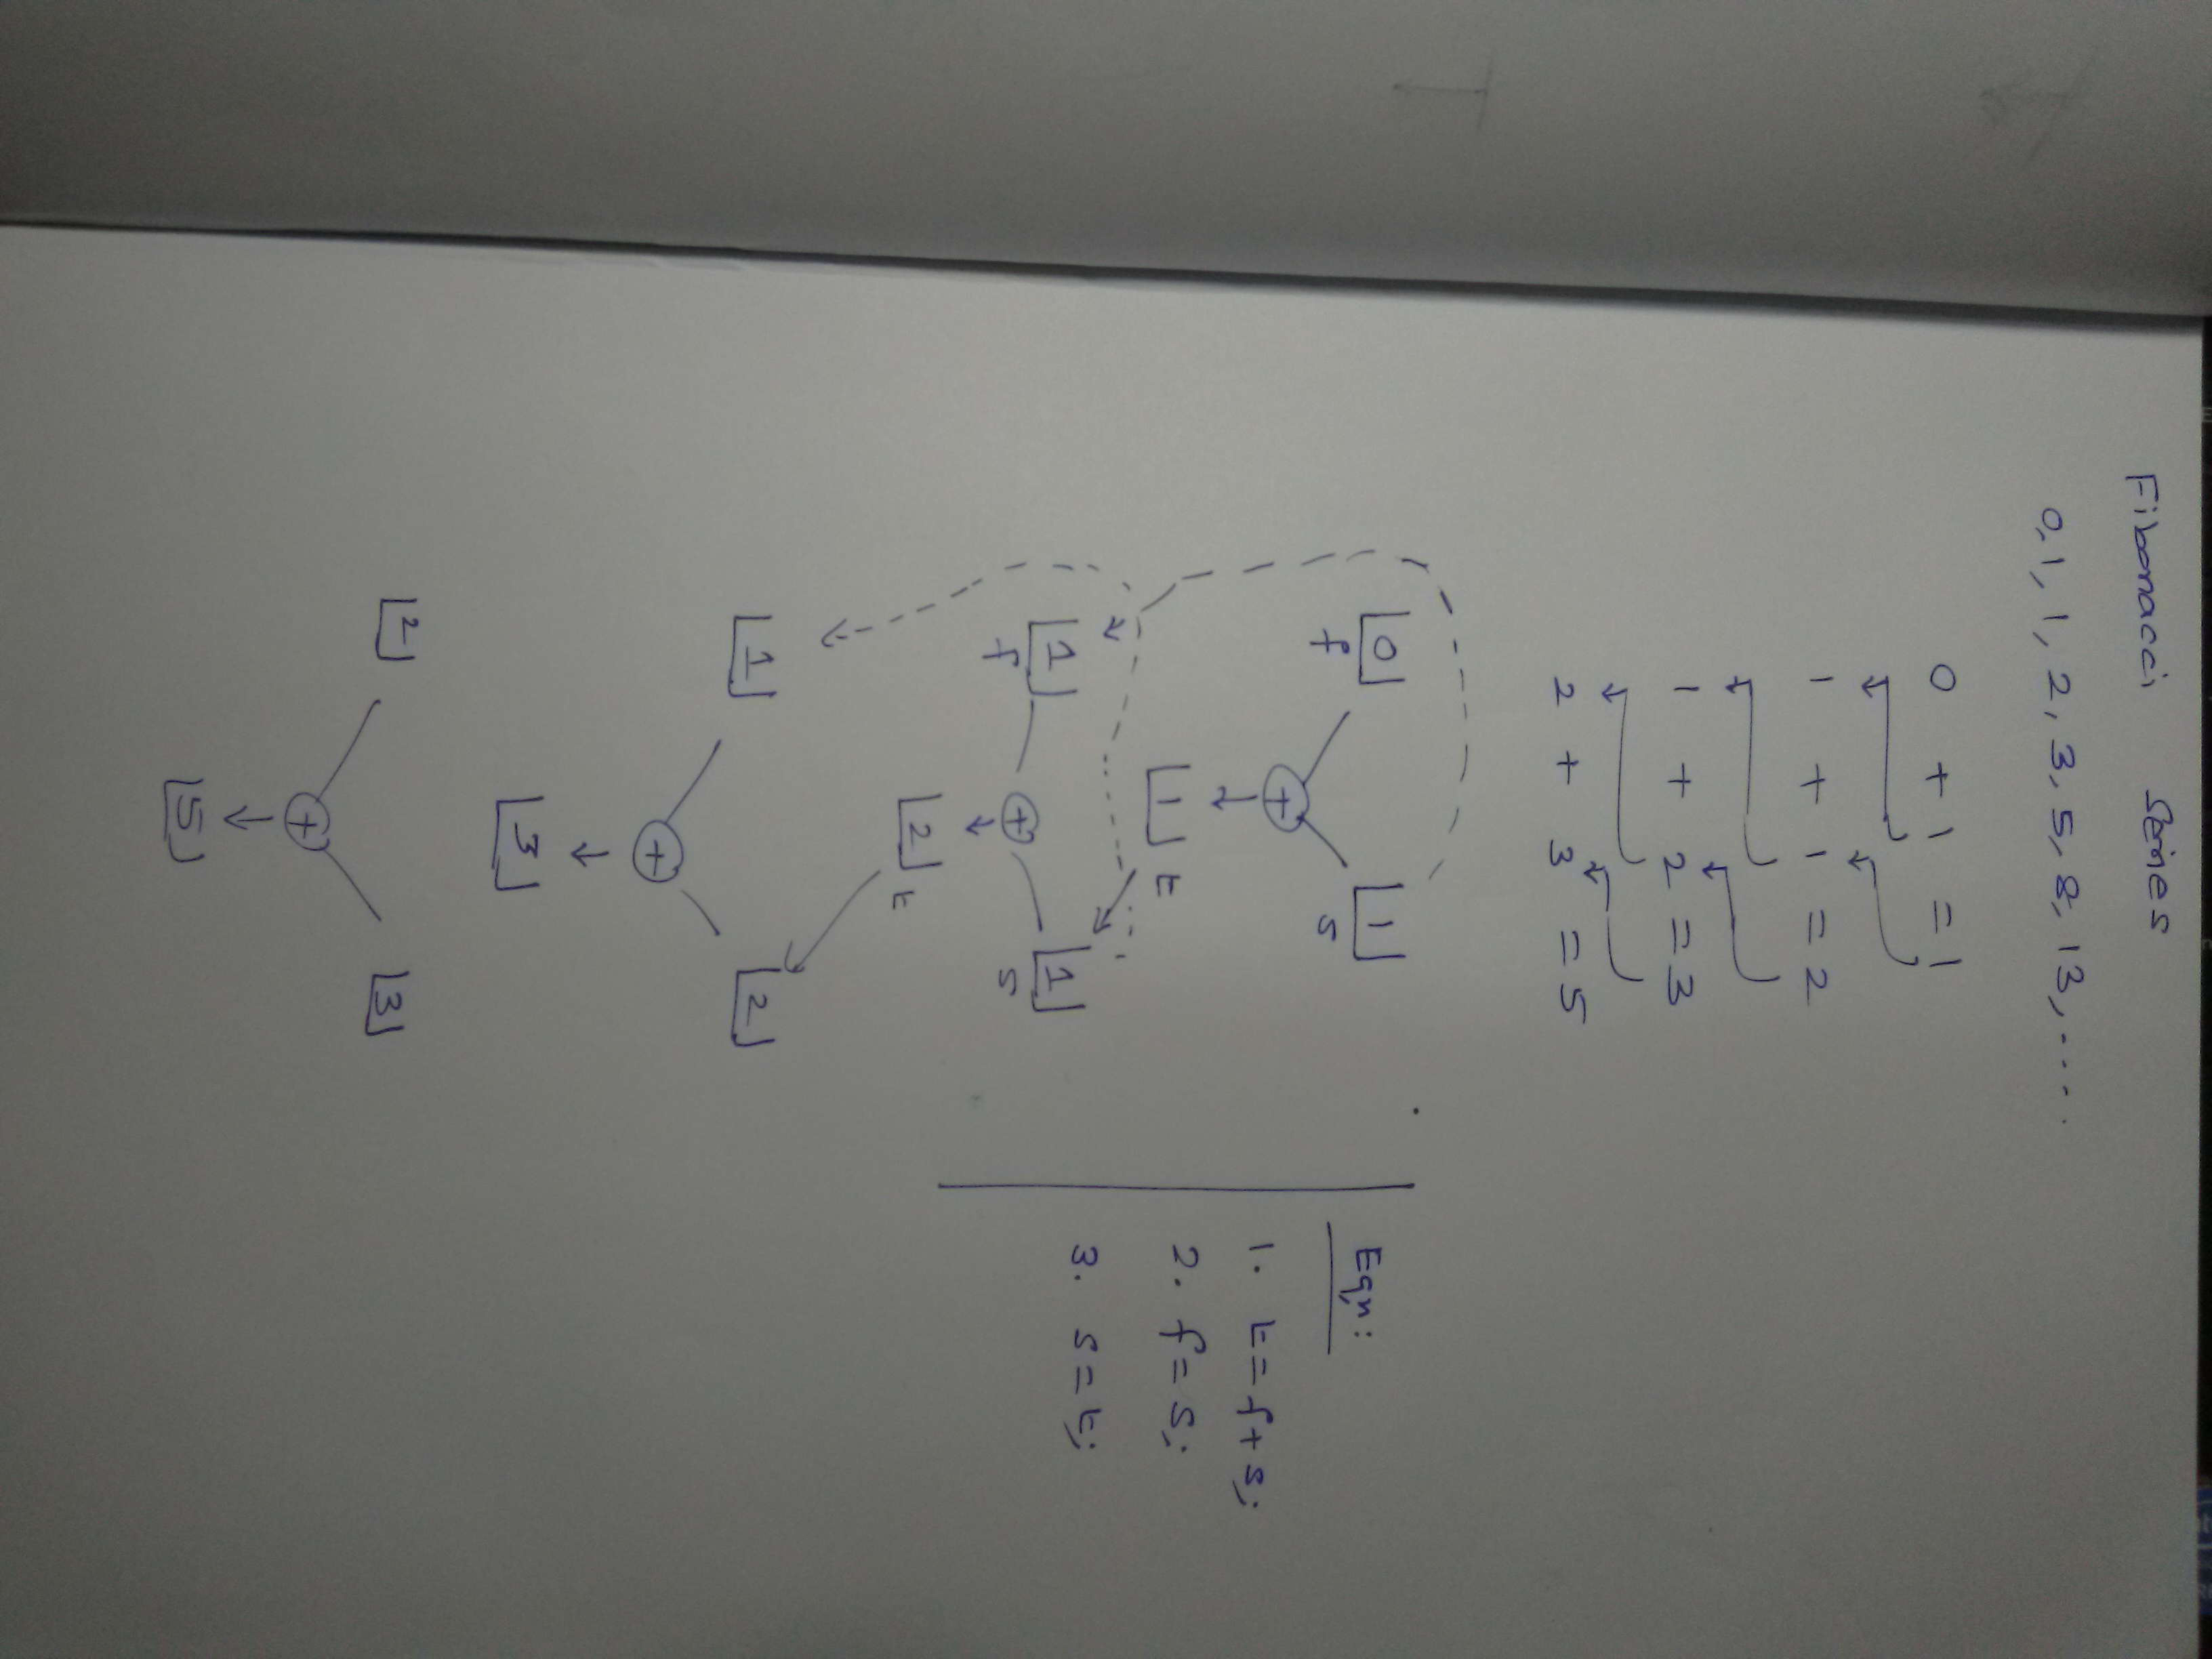 Fibonacci Series
0, 1, 1, 2, 3, 5, 8, 13, ....
0 + 1 = 1
1 + 1 = 2
1 + 2 = 3
2 + 3 = 5
0 1
f s
+
1 t
1 + 1
f s
2 t
1 2
+
3
2 3
+
5
Eqn:
1. t = f + s;
2. f = s;
3. s = t;